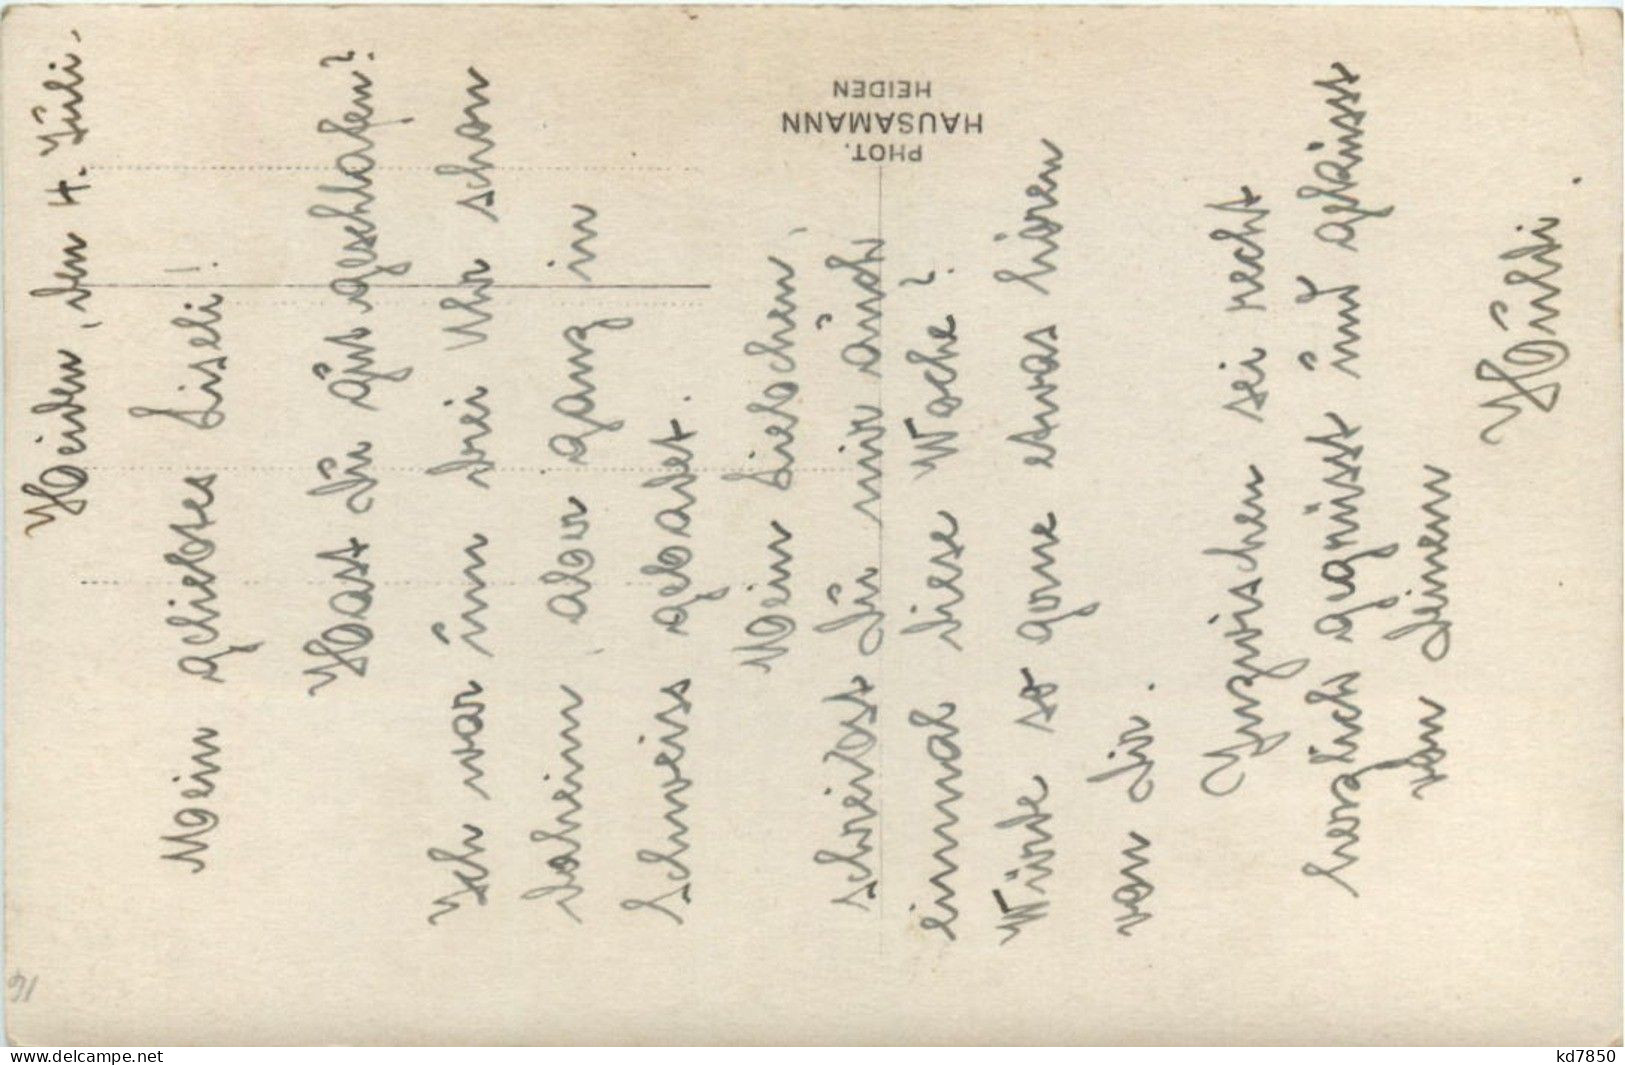 Heiden, den 4. Juli.
Mein geliebtes Liseli!
Hast Du gut geschlafen?
Ich war um drei Uhr schon
daheim, aber ganz in
Schweiss gebadet.
Mein Liebchen,
schreibst Du mir auch
einmal diese Woche?
Würde so gerne etwas hören
von Dir.
Inzwischen sei recht
herzlich gegrüsst und geküsst
von Deinem
Hündi.
PHOT.
HAUSAMANN
HEIDEN
www.delcampe.net
kd7850